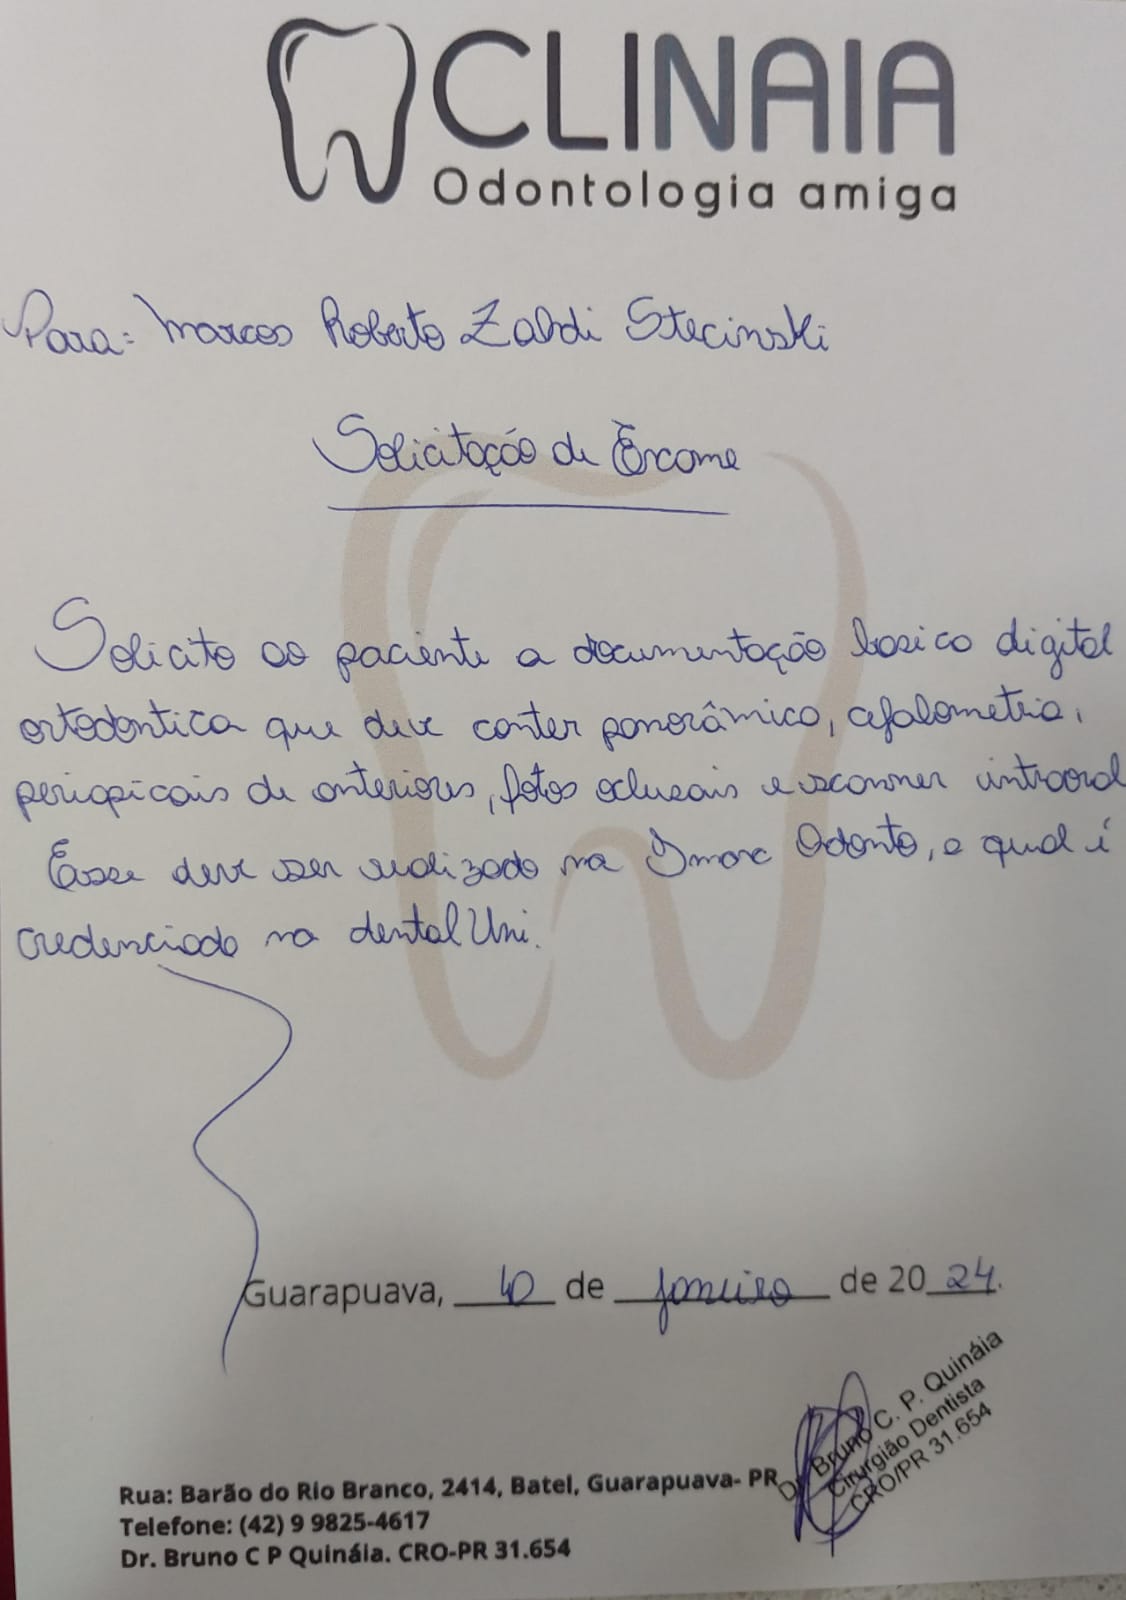 CLINAIA
Odontologia amiga
Para: Marcos Roberto Zaldi Stecinski
Solicitação de Exame
Solicito ao paciente a documentação basica digital
ortodontica que deve conter panorâmica, cefalometria,
periapicais de anteriores, fotos oclusais e scanner intraoral
Esse deve ser realizado na Imax Odonto, a qual é
credenciada na dental Uni.
Guarapuava, 10 de janeiro de 2024.
Dr. Bruno C. P. Quináia
Cirurgião Dentista
CRO/PR 31.654
Rua: Barão do Rio Branco, 2414, Batel, Guarapuava- PR
Telefone: (42) 9 9825-4617
Dr. Bruno C P Quináia. CRO-PR 31.654